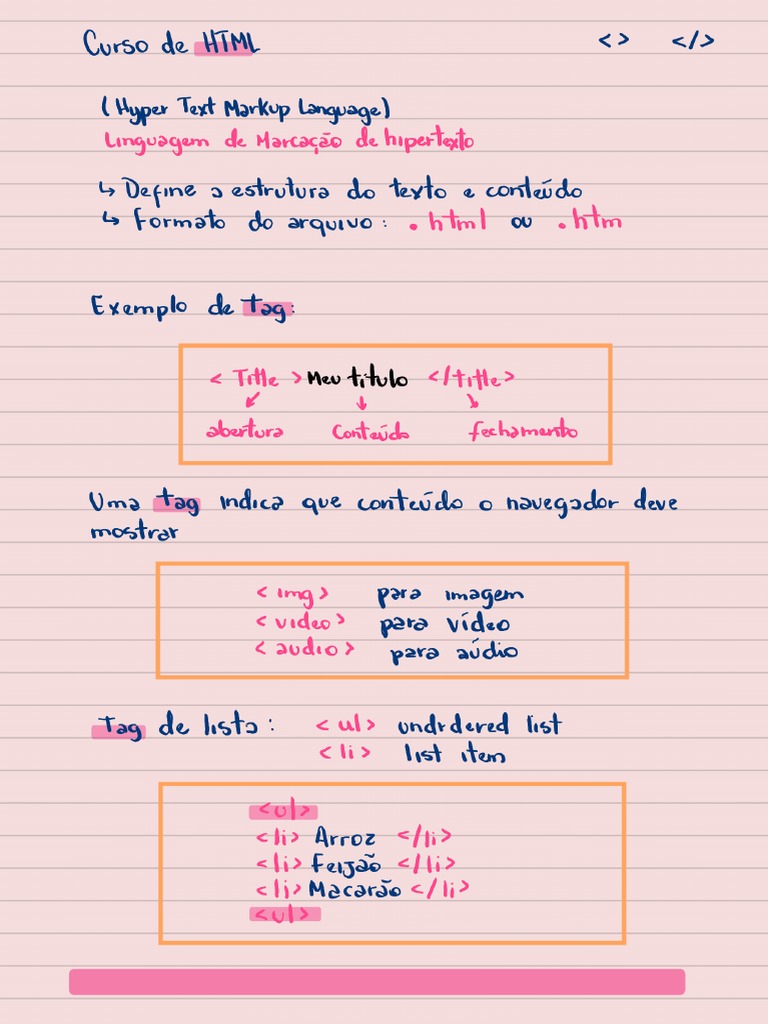 Curso de HTML <> </>
(Hyper Text Markup Language)
Linguagem de Marcação de hipertexto
↳ Define a estrutura do texto e conteúdo
↳ Formato do arquivo: .html ou .htm
Exemplo de tag:
< Title > Meu título </title>
abertura Conteúdo fechamento
Uma tag indica que conteúdo o navegador deve
mostrar
<img> para imagem
<video> para vídeo
<audio> para aúdio
Tag de lista: <ul> undrdered list
<li> list item
<ul>
<li> Arroz </li>
<li> Feijão </li>
<li> Macarão </li>
<ul>